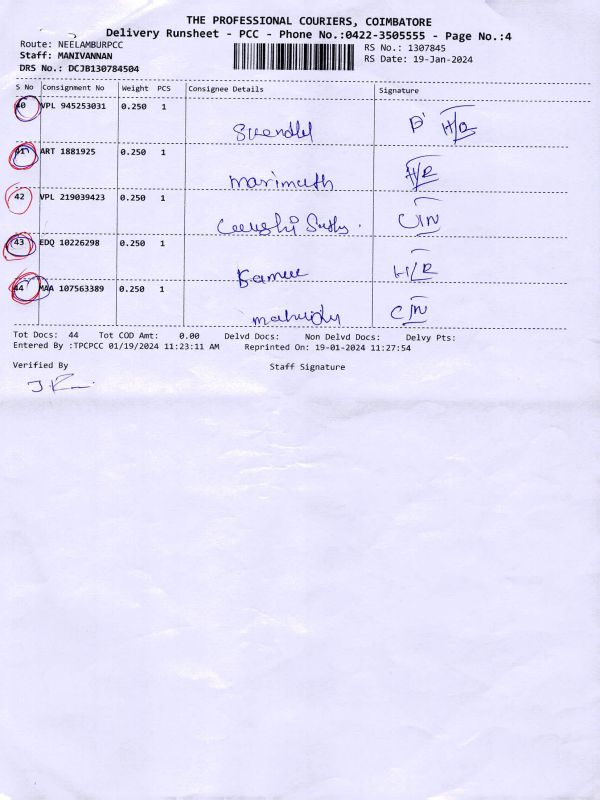 THE PROFESSIONAL COURIERS, COIMBATORE
Delivery Runsheet - PCC - Phone No.:0422-3505555 - Page No.:4
Route: NEELAMBURPCC RS No.: 1307845
Staff: MANIVANNAN RS Date: 19-Jan-2024
DRS No.: DCJB130784504
S No Consignment No Weight PCS Consignee Details Signature
40 VPL 945253031 0.250 1
H/R
41 ART 1881925 0.250 1
marimuth H/R
42 VPL 219039423 0.250 1
43 EDQ 10226298 0.250 1
H/R
44 MAA 107563389 0.250 1
Tot Docs: 44 Tot COD Amt: 0.00 Delvd Docs: Non Delvd Docs: Delvy Pts:
Entered By :TPCPCC 01/19/2024 11:23:11 AM Reprinted On: 19-01-2024 11:27:54
Verified By Staff Signature